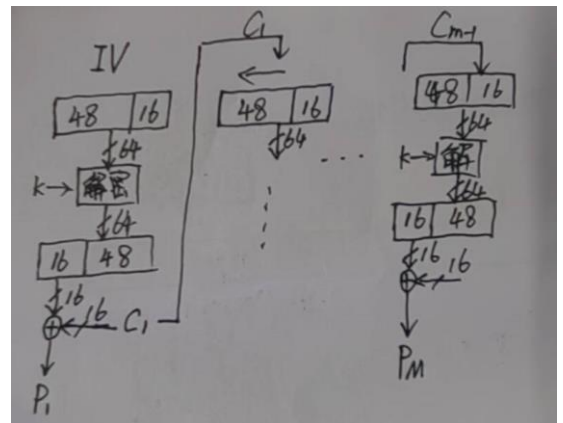 IV
48 16
64
k→ 解密
64
16 48
16
16 C₁
P₁
C₁
←
48 16
64
....
Cm-1
48 16
64
k→ 解
64
16 48
16
16
PM